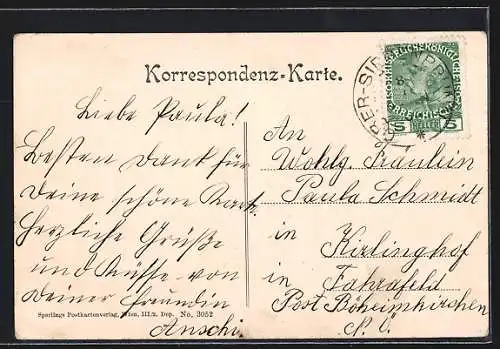 Korrespondenz-Karte.
Liebe Paula!
Besten Dank für
Deine schöne Karte.
Herzliche Grüße
und Küsse von
Deiner Freundin
Anschi
An
Wohlg. Fräulein
Paula Schmidt
in Kirlinghof
in Fahrafeld
Post Böheimkirchen
N. Ö.
5 HELLER 5
Sperlings Postkartenverlag, Wien, III./2. Dep. No. 3052